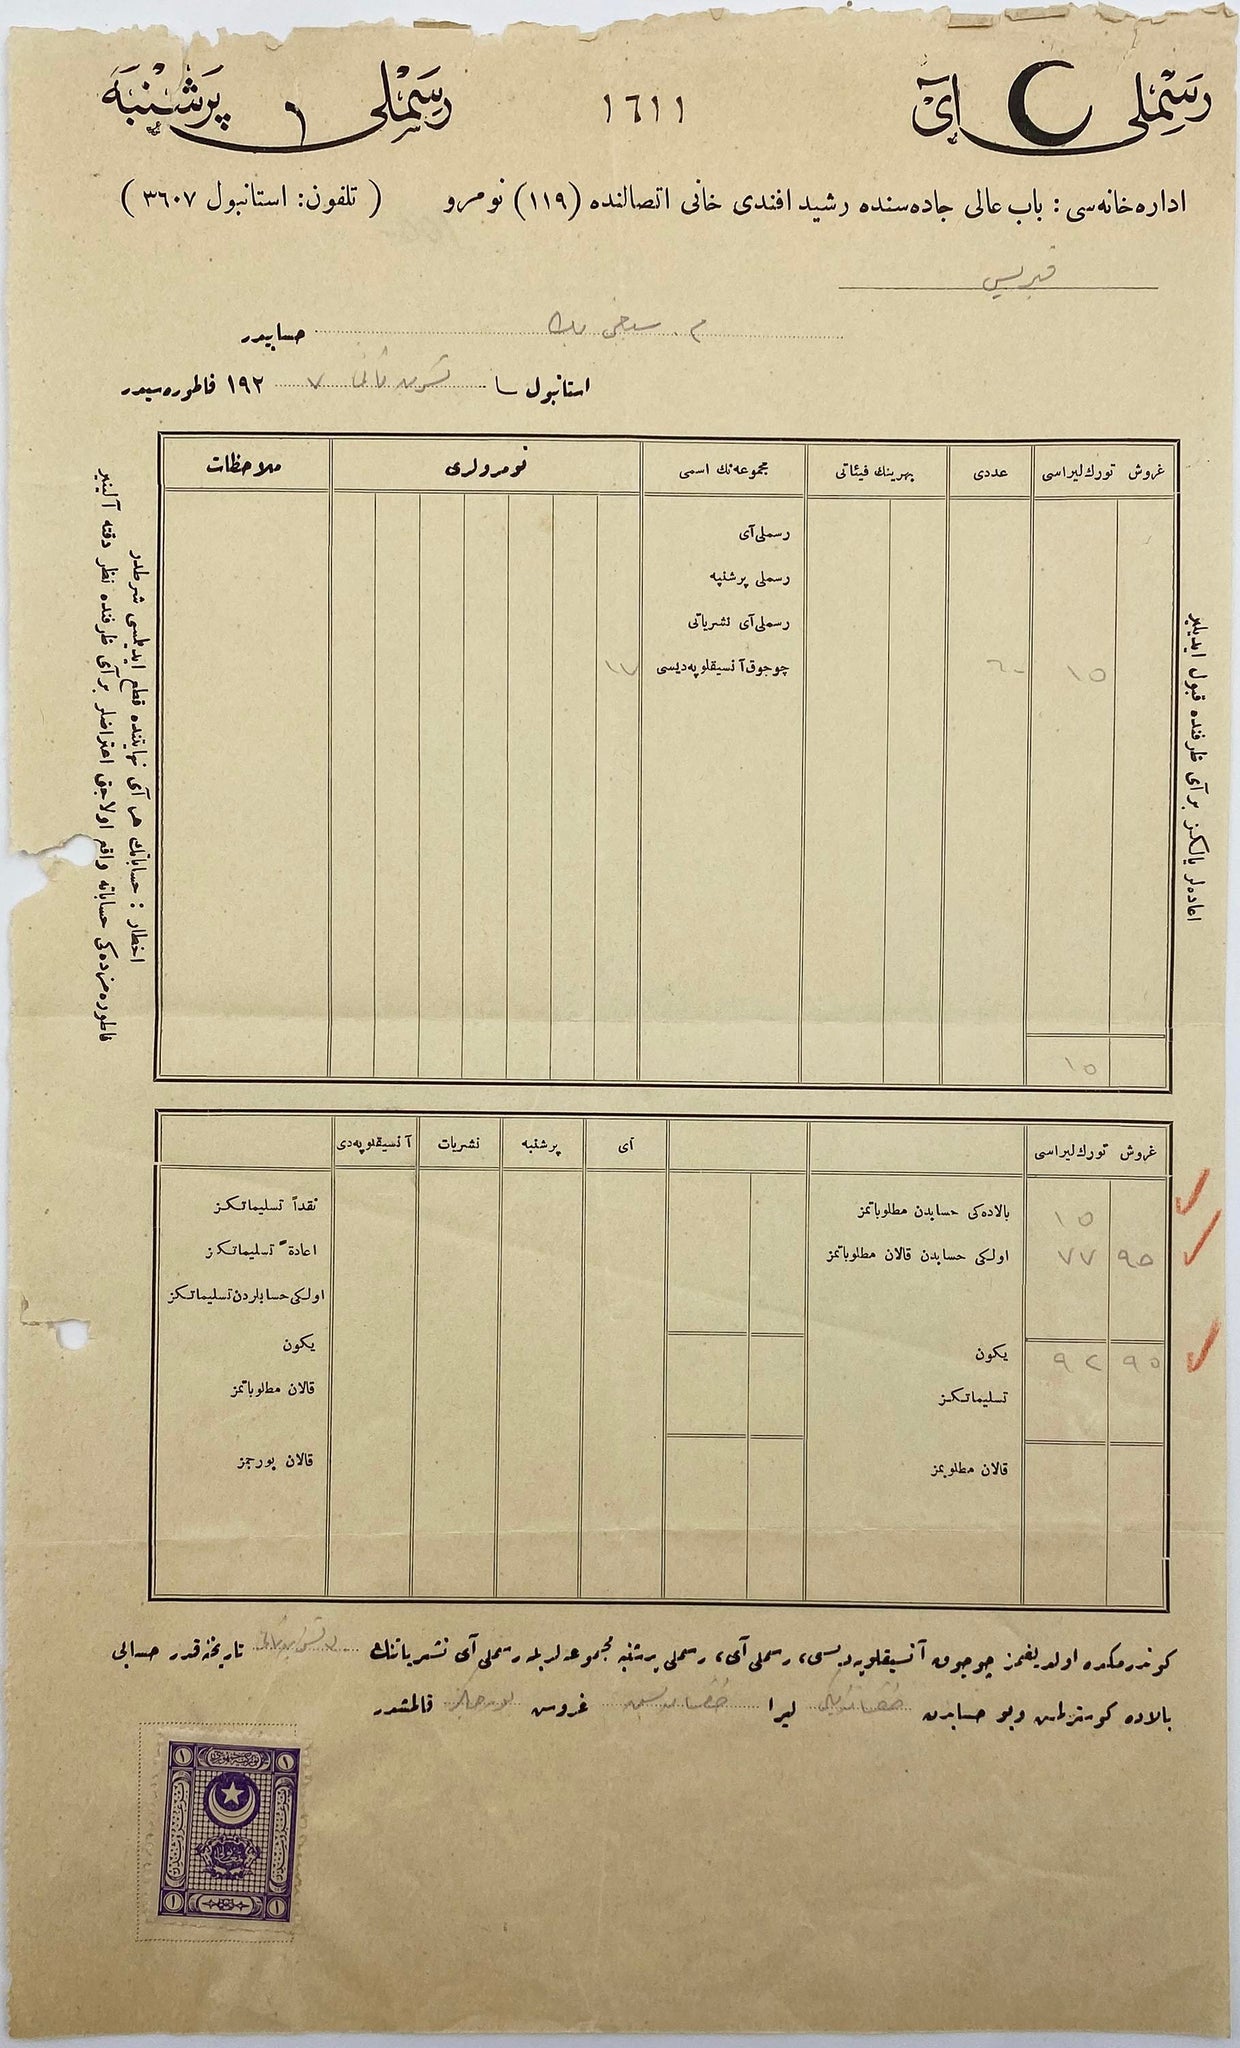 رَسِمْلی آیْ
١٦١١
رَسِمْلی پَرْشَنْبَه
اداره‌خانه‌سی : باب عالی جاده‌سنده رشید افندی خانی اتصالنده (١١٩) نومرو ( تلفون: استانبول ٣٦٠٧ )
قبریس
م.  بك حسابیدر
استانبول تشرین ثانی ٧ ١٩٢ فاطوره‌سیدر
غروش تورك لیراسی عددی بهرینك فیئاتی مجموعه‌نك اسمی نومرولری ملاحظات
رسملی آی
رسملی پرشنبه
رسملی آی نشریاتی
١٥ ٦٠ چوجوق آنسیقلوپه‌دیسی ١٧
١٥
اعاده‌لر یالكز بر آی ظرفنده قبول ایدیلیر
اخطار : حساباتك هر آی نهایتنده قطع ایدیلمسی شرطدر
فاطوره‌مزده‌كی حساباته واقع اولاجق اعتراضلر بر آی ظرفنده نظر دقته آلینیر
غروش تورك لیراسی آی پرشنبه نشریات آنسیقلوپه‌دی
١٥ بالاده‌كی حسابدن مطلوباتمز نقداً تسلیماتكز
٩٥ ٧٧ اولكی حسابدن قالان مطلوباتمز اعادةً تسلیماتكز
اولكی حسابلردن تسلیماتكز
٩٥ ٩٢ یكون یكون
تسلیماتكز قالان مطلوباتمز
قالان مطلوبمز قالان بورجمز
كوندرمكده اولدیغمز چوجوق آنسیقلوپه‌دیسی، رسملی آی، رسملی پرشنبه مجموعه‌لریله رسملی آی نشریاتنك تاریخنه قدر حسابی
بالاده كوسترلمش وبو حسابدن لیرا غروش قالمشدر
١ ١
١ ١